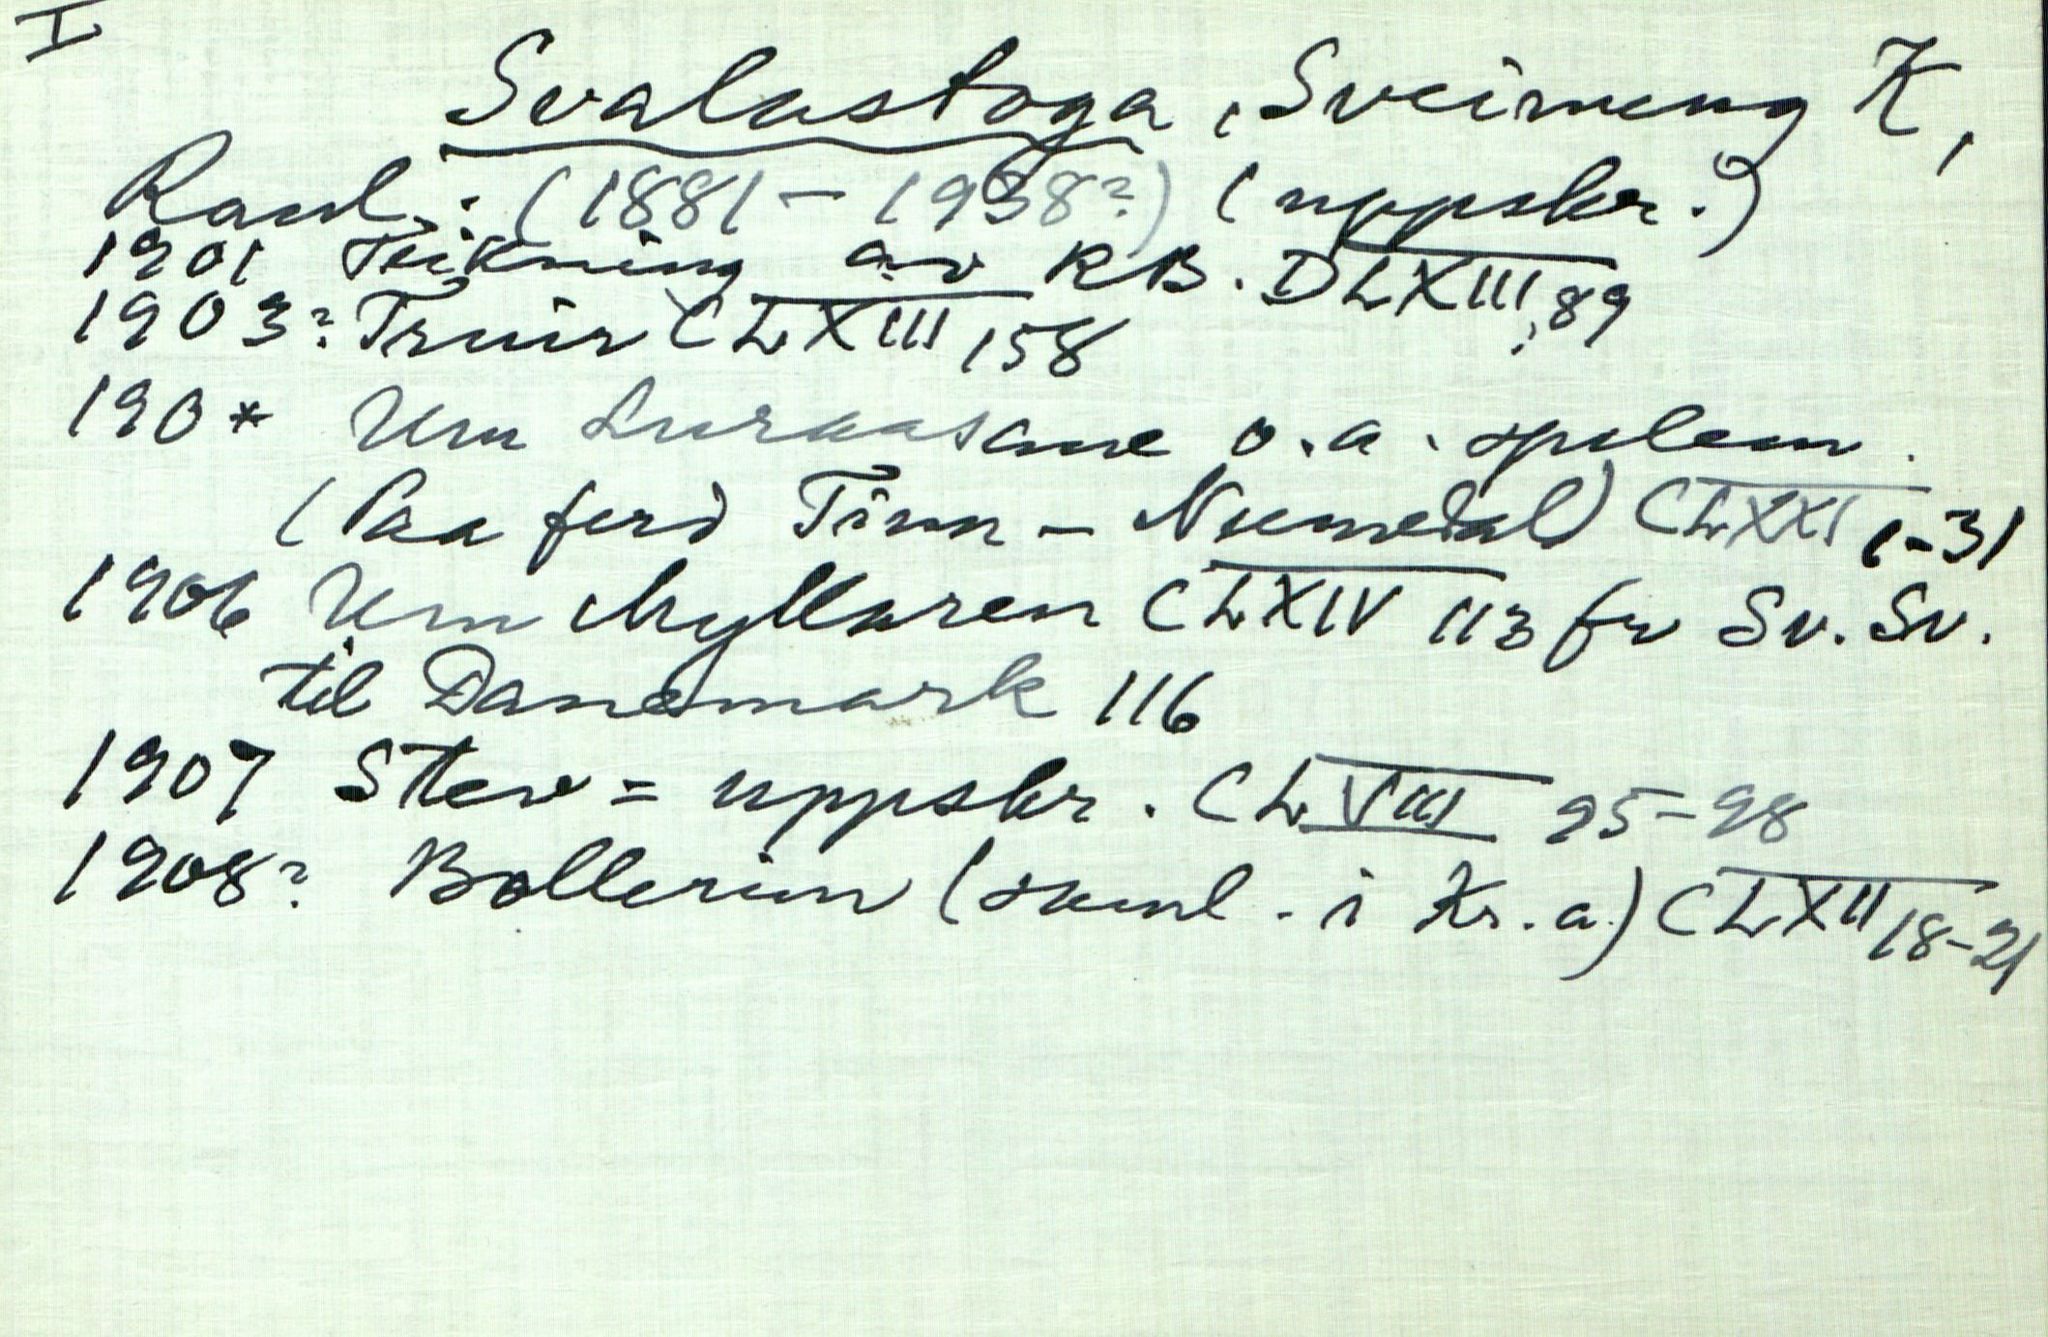 I
Svalastoga, Sveinung K,
Raul.: (1881 – 1938?) (uppskr.)
1901 Teikning av RB. DLXIII, 89
1903? Truir CLXIII 158
190* Um Luraasane o.a. spelem.
(Paa ferd Tinn – Numedal) CLXXI 1-31
1906 Um Myllaren CLXIV 113 fr Sv. Sv.
til Danemark 116
1907 Stev= uppskr. CLVIII 95-98
1908? Bollerim (saml. i Kr.a.) CLXII 18-21